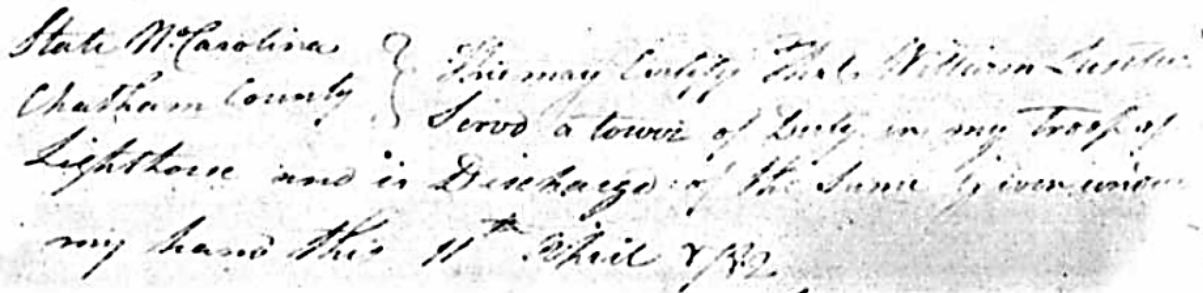 State No Carolina } This may Certify That William
Chatham County } Servd a tower of Duty in my Troop of
Lighthorse and is Discharged of the Same Given under
my hand this 11th April 1782